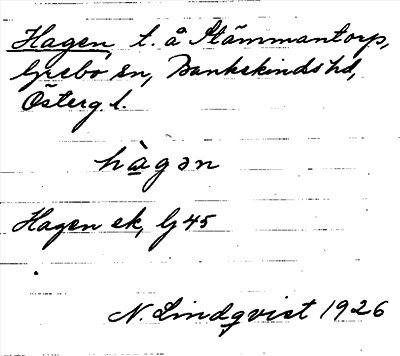 Hagen, t. å Stämmantorp,
Grebo sn, Bankekinds hd,
Österg. l.
hàgən
Hagen ek, lj 45
N. Lindqvist 1926